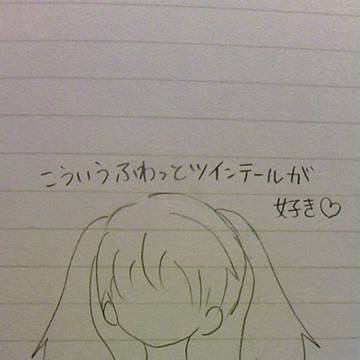 こういうふわっとツインテールが
好き♡